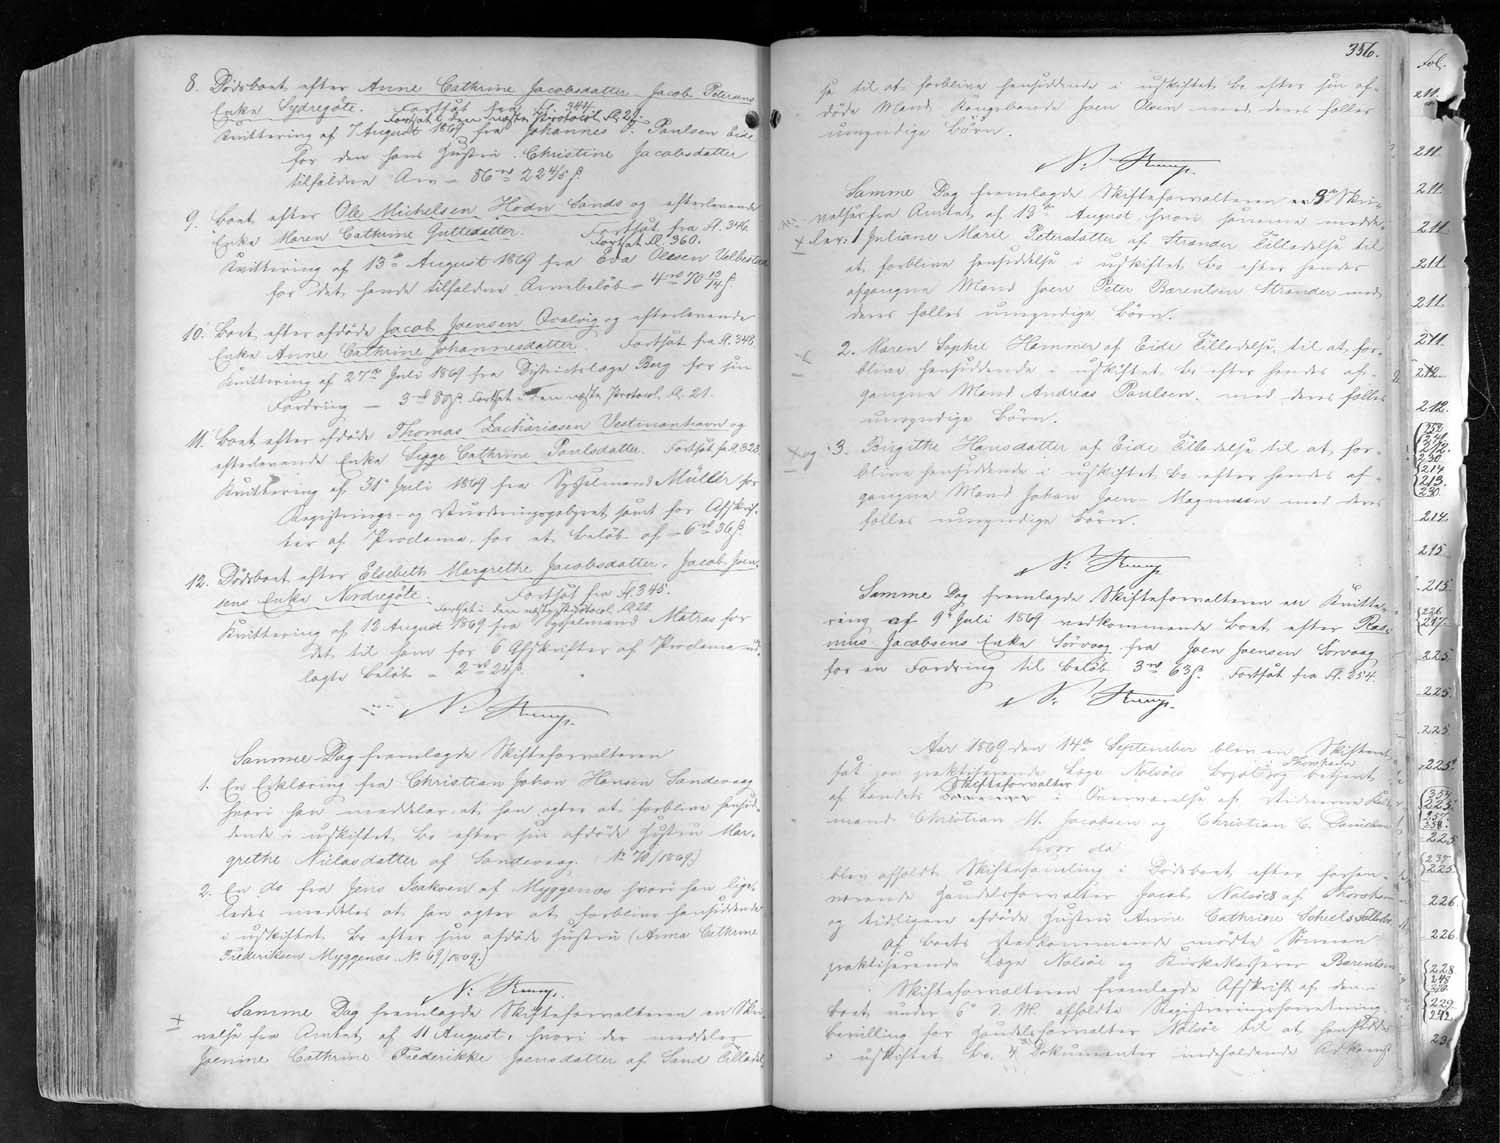 8. Dödsboet efter Anne Cathrine Jacobsdatter, Jacob Petersens
Enke Sydregöte. Fortsat fra Fl. 344.
Fortsat i den næste Protocol Fl. 21.
Kvittering af 7 August 1869 fra Johannes P. Paulsen Eide
for den hans Hustru Christine Jacobsdatter
tilfaldne Arv – 86 rd 22 4/5 ſ.
9. Boet efter Ole Michelsen Hodn Sands og efterlevende
Enke Maren Cathrine Guttesdatter. Fortsat fra Fl. 346.
Fortsat Fl. 360.
Kvittering af 13de August 1869 fra Eva Olesen Valbestad
for det hende tilfaldne Arvebeløb – 4 rd 70 13/14 ſ.
10. Boet efter afdøde Jacob Joensen Qvalvig og efterlevende
Enke Anne Cathrine Johannesdatter. Fortsat fra Fl. 348.
Kvittering af 27de Juli 1869 fra Districtslæge Berg for sin
Fordring – 3 rd 80 ſ. Fortsat i den næste Protocol Fl. 21.
11. Boet efter afdøde Thomas Zachariasen Vestmanhavn og
efterlevende Enke Sigge Cathrine Poulsdatter. Fortsat fra Fl. 323.
Kvittering af 31te Juli 1869 fra Sysselmand Müller for
Registrerings- og Vurderingsgebyret samt for Afskrif-
ter af Proclama, for et Beløb af – 6 rd 36 ſ.
12. Dödsboet efter Elsebeth Margrethe Jacobsdatter, Jacob Joen-
sens Enke Nordregöte. Fortsat fra Fl. 345.
Fortsat i den næste Protocol Fl. 20.
Kvittering af 12 August 1869 fra Sysselmand Matras for
det til ham for 6 Afskrifter af Proclama ud-
lagte Beløb – 2 rd 24 ſ.
N. Krug.
Samme Dag fremlagde Skifteforvalteren
1. En Erklæring fra Christian Johan Hansen Sandevaag
hvori han meddeler at han agter at forblive hensid-
dende i uskiftet Bo efter sin afdøde Hustru Mar-
grethe Niclasdatter af Sandevaag. (No 70/1869.)
2. En do fra Jens Isaksen af Myggenæs hvori han lige-
ledes meddeles at han agter at forblive hensiddende
i uskiftet Bo efter sin afdøde Hustru (Anna Cathrine
Frederiksen Myggenæs. No 69/1869.)
N. Krug.
Samme Dag fremlagde Skifteforvalteren en Skri-
velse fra Amtet af 11 August, hvori der meddeles
Joenine Cathrine Frederikke Joensdatter af Sand Tilladel-
356.
se til at forblive hensiddende i uskiftet Bo efter sin af-
døde Mand Kongsbonde Joen Olsen med deres fælles
umyndige Børn.
N. Krug.
Samme Dag fremlagde Skifteforvalteren 3de Skri-
velser fra Amtet af 13de August hvori samme medde-
ler: 1 Juliane Marie Petersdatter af Strander Tilladelse til
at forblive hensiddende i uskiftet Bo efter hendes
afgangne Mand Joen Peter Bærentsen Strander med
deres fælles umyndige Børn.
2. Maren Sophie Hammer af Eide Tilladelse til at for-
blive hensiddende i uskiftet Bo efter hendes af-
gangne Mand Andreas Poulsen, med deres fælles
umyndige Børn.
og 3. Birgithe Hansdatter af Eide Tilladelse til at for-
blive hensiddende i uskiftet Bo efter hendes af-
gangne Mand Johan Joen Magnussen med deres
fælles umyndige Børn.
N. Krug.
Samme Dag fremlagde Skifteforvalteren en Kvitte-
ring af 9de Juli 1869 vedkommende Boet efter Ras-
mus Jacobsens Enke Sörvaag fra Joen Joensen Sörvaag
for en Fordring til Beløb 3 rd 63 ſ. Fortsat fra Fl. 254.
N. Krug.
Aar 1869 den 14de September blev en Skifteret
sat paa praktiserende Læge Nolsöes Bopæl i Thorshavn og betjent
af Landets Skifteforvalter i Overværelse af Vidnerne
Christian M. Jacobsen og Christian C. Danielsen
hvor da
blev afholdt Skiftesamling i Dödsboet efter forhen-
værende Handelsforvalter Jacob Nolsöe af Thorshavn
og tidligere afdöde Hustru Anne Cathrine
Af Boets Vedkommende mødte Sønnen
praktiserende Læge Nolsöe og Kirkekasserer Bærentsen
Skifteforvalteren fremlagde Afskrift af den i
Boet under 6te d. M. afholdte Registreringsforretning,
Bevilling for Handelsforvalter Nolsöe til at hensidde
i uskiftet Bo, 4 Dokumenter indeholdende Adkomst
Fol.
211.
211
211.
211
211.
211.
211
212
212.
214.
215
215.
225.
225.
225.
225.
226.
226.